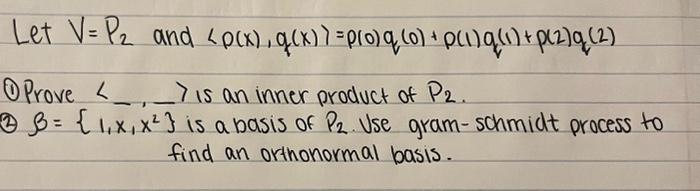 Let V=P₂ and <p(x),q(x)>=p(0)q(0)+p(1)q(1)+p(2)q(2)
① Prove <_,_> is an inner product of P₂.
② β = {1,x,x²} is a basis of P₂. Use gram-schmidt process to
find an orthonormal basis.